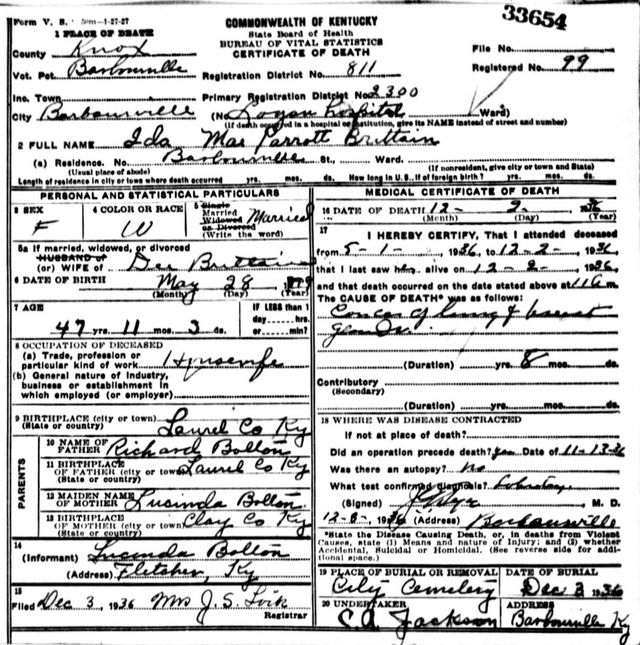 Form V. S.
50m-1-27-27
33654
COMMONWEALTH OF KENTUCKY
State Board of Health
BUREAU OF VITAL STATISTICS
CERTIFICATE OF DEATH
1 PLACE OF DEATH
County Knox
File No.
Vot. Pct. Barbourville
Registration District No. 811
Registered No. 99
Inc. Town
Primary Registration District No. 2300
City Barbourville
(No. Logan Hospital Ward)
(If death occurred in a hospital or institution, give its NAME instead of street and number)
2 FULL NAME Ida Mae Parrott Brittain
(a) Residence. No. Barbourville St., Ward.
(Usual place of abode) (If nonresident, give city or town and State)
Length of residence in city or town where death occurred yrs. mos. ds. How long in U.S., if of foreign birth? yrs. mos. ds.
PERSONAL AND STATISTICAL PARTICULARS
3 SEX F
4 COLOR OR RACE W
5 Single Married Widowed or Divorced (Write the word) Married
5a If married, widowed, or divorced
HUSBAND of
(or) WIFE of Dee Brittain
6 DATE OF BIRTH May 28
(Month) (Day) (Year)
7 AGE 47 yrs. 11 mos. 3 ds.
IF LESS than 1 day hrs. or min.
8 OCCUPATION OF DECEASED
(a) Trade, profession or particular kind of work Housewife
(b) General nature of industry, business or establishment in which employed (or employer)
9 BIRTHPLACE (city or town) Laurel Co Ky
(State or country)
PARENTS
10 NAME OF FATHER Richard Bolton
11 BIRTHPLACE OF FATHER (city or town) Laurel Co Ky
(State or country)
12 MAIDEN NAME OF MOTHER Lucinda Bolton
13 BIRTHPLACE OF MOTHER (city or town) Clay Co Ky
(State or country)
14
(Informant) Lucinda Bolton
(Address) Fletcher, Ky
15
Filed Dec 3, 1936 Mrs J. S. Registrar
MEDICAL CERTIFICATE OF DEATH
16 DATE OF DEATH 12- 2- 36
(Month) (Day) (Year)
17 I HEREBY CERTIFY, That I attended deceased
from 5-1-, 1936, to 12-2-, 1936,
that I last saw her alive on 12-2-, 1936,
and that death occurred on the date stated above at 11 a m.
The CAUSE OF DEATH* was as follows:
Cancer of lung & breast
(Duration) yrs. 8 mos. ds.
Contributory
(Secondary)
(Duration) yrs. mos. ds.
18 WHERE WAS DISEASE CONTRACTED
If not at place of death?
Did an operation precede death? yes Date of 11-13-36
Was there an autopsy? no
What test confirmed diagnosis? Laboratory
(Signed) M. D.
1936 (Address) Barbourville
*State the Disease Causing Death, or, in deaths from Violent
Causes, state (1) Means and nature of Injury; and (2) whether
Accidental, Suicidal or Homicidal. (See reverse side for additional space.)
19 PLACE OF BURIAL OR REMOVAL City Cemetery
DATE OF BURIAL Dec 3 1936
20 UNDERTAKER C.A. Jackson
ADDRESS Barbourville Ky